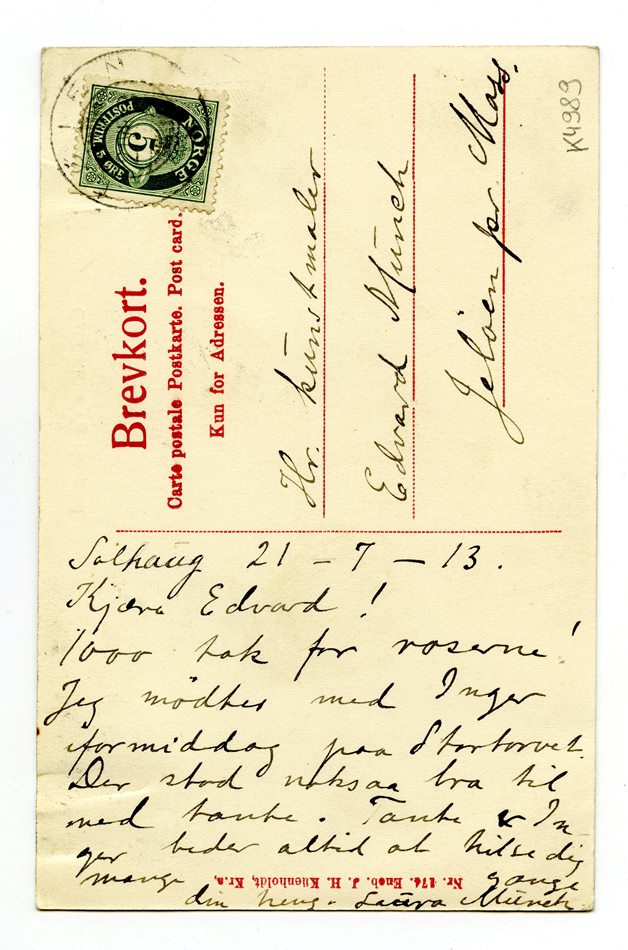 NORGE
POSTFRIM. 5 ØRE
5
Brevkort.
Carte postale Postkarte. Post card.
Kun for Adressen.
Hr. kunstmaler
Edvard Munch
Jeløen pr Moss.
K4989
Solhaug 21 – 7 – 13.
Kjære Edvard!
1000 tak for roserne!
Jeg mødtes med Inger
iformiddag paa Stortorvet.
Der stod noksaa bra til
med tante. Tante & In-
ger beder altid at hilse dig
mange gange
din heng. Laura Munch
Nr. 174. Eneb. J. H. Küenholdt, Kr.a.